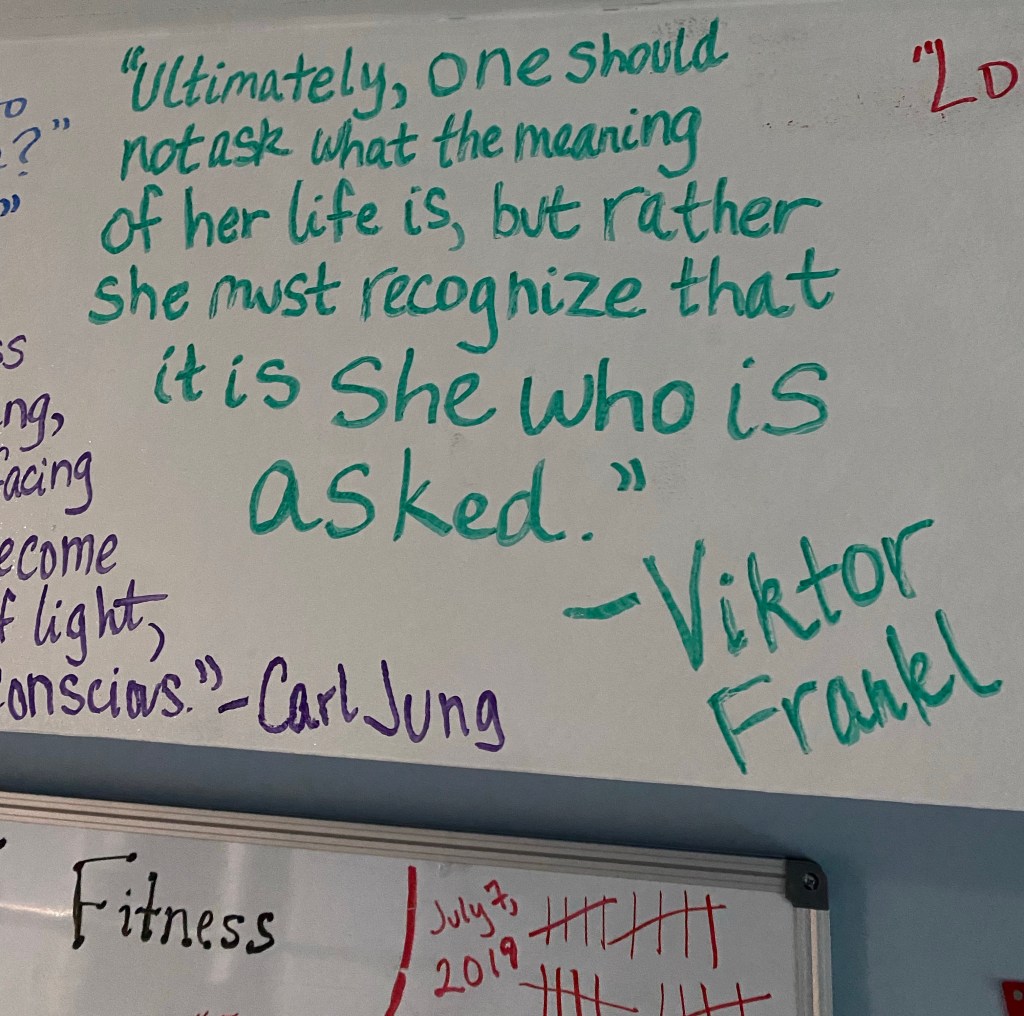 "Ultimately, one should
not ask what the meaning
of her life is, but rather
she must recognize that
it is She who is
asked."
-Viktor
Frankl
?"
"
ng,
acing
ecome
f light,
onscious." - Carl Jung
"Lo
Fitness
July 7,
2019